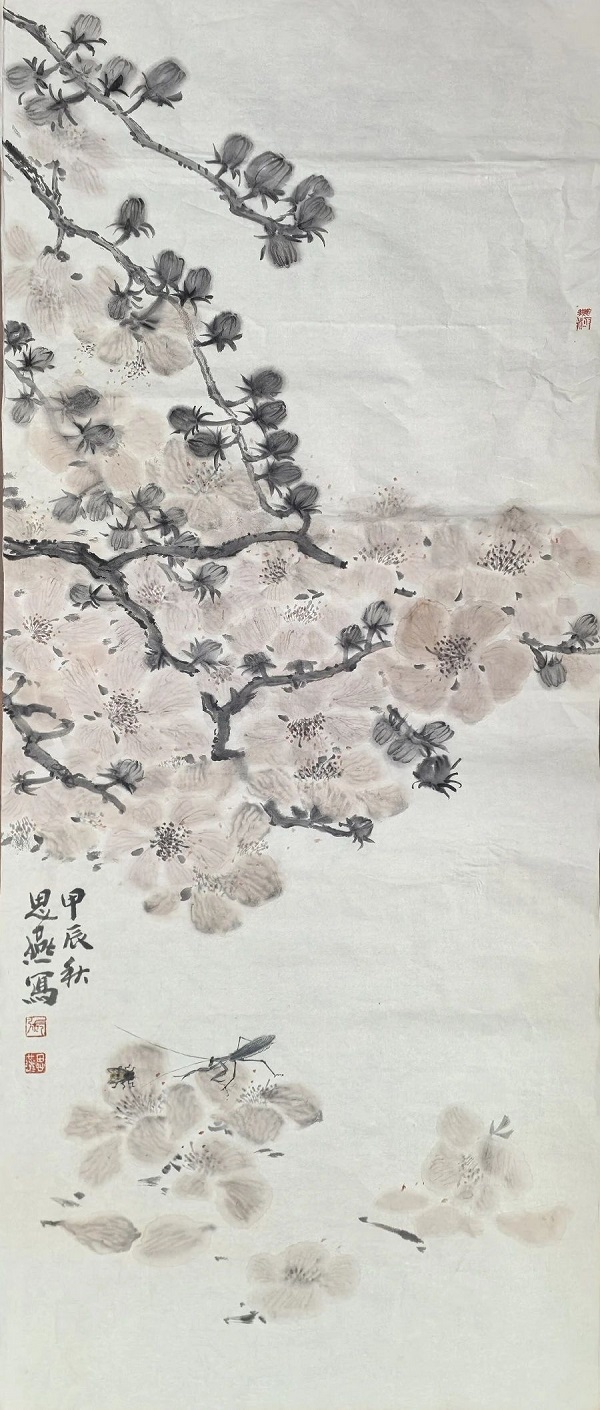 甲辰秋
思燕写